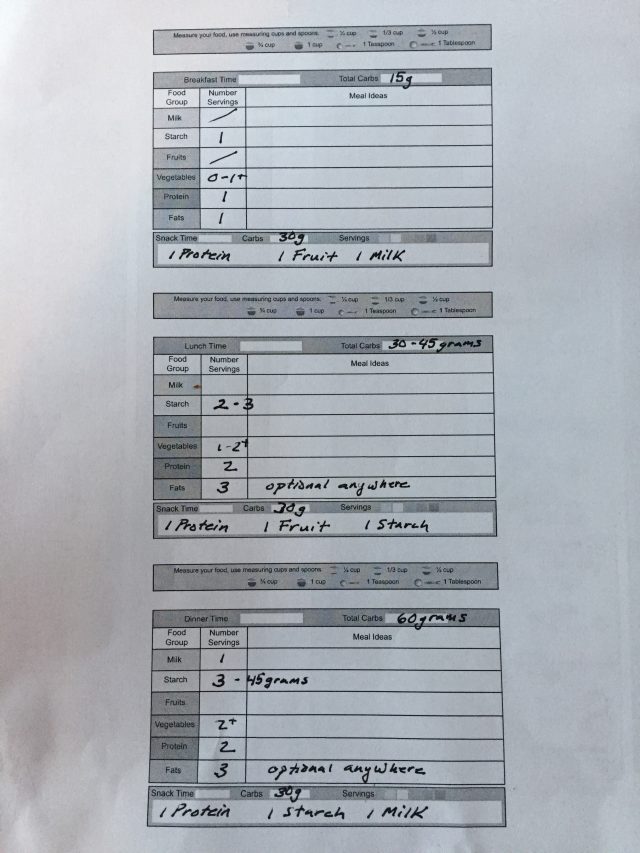 Measure your food, use measuring cups and spoons. ¼ cup 1/3 cup ½ cup
¾ cup 1 cup 1 Teaspoon 1 Tablespoon
Breakfast Time Total Carbs 15g
Food Group Number Servings Meal Ideas
Milk /
Starch 1
Fruits /
Vegetables 0-1+
Protein 1
Fats 1
Snack Time Carbs 30g Servings
1 Protein 1 Fruit 1 Milk
Measure your food, use measuring cups and spoons. ¼ cup 1/3 cup ½ cup
¾ cup 1 cup 1 Teaspoon 1 Tablespoon
Lunch Time Total Carbs 30-45grams
Food Group Number Servings Meal Ideas
Milk
Starch 2-3
Fruits
Vegetables 1-2+
Protein 2
Fats 3 optional anywhere
Snack Time Carbs 30g Servings
1 Protein 1 Fruit 1 Starch
Measure your food, use measuring cups and spoons. ¼ cup 1/3 cup ½ cup
¾ cup 1 cup 1 Teaspoon 1 Tablespoon
Dinner Time Total Carbs 60grams
Food Group Number Servings Meal Ideas
Milk 1
Starch 3 - 45grams
Fruits
Vegetables 2+
Protein 2
Fats 3 optional anywhere
Snack Time Carbs 30g Servings
1 Protein 1 Starch 1 Milk